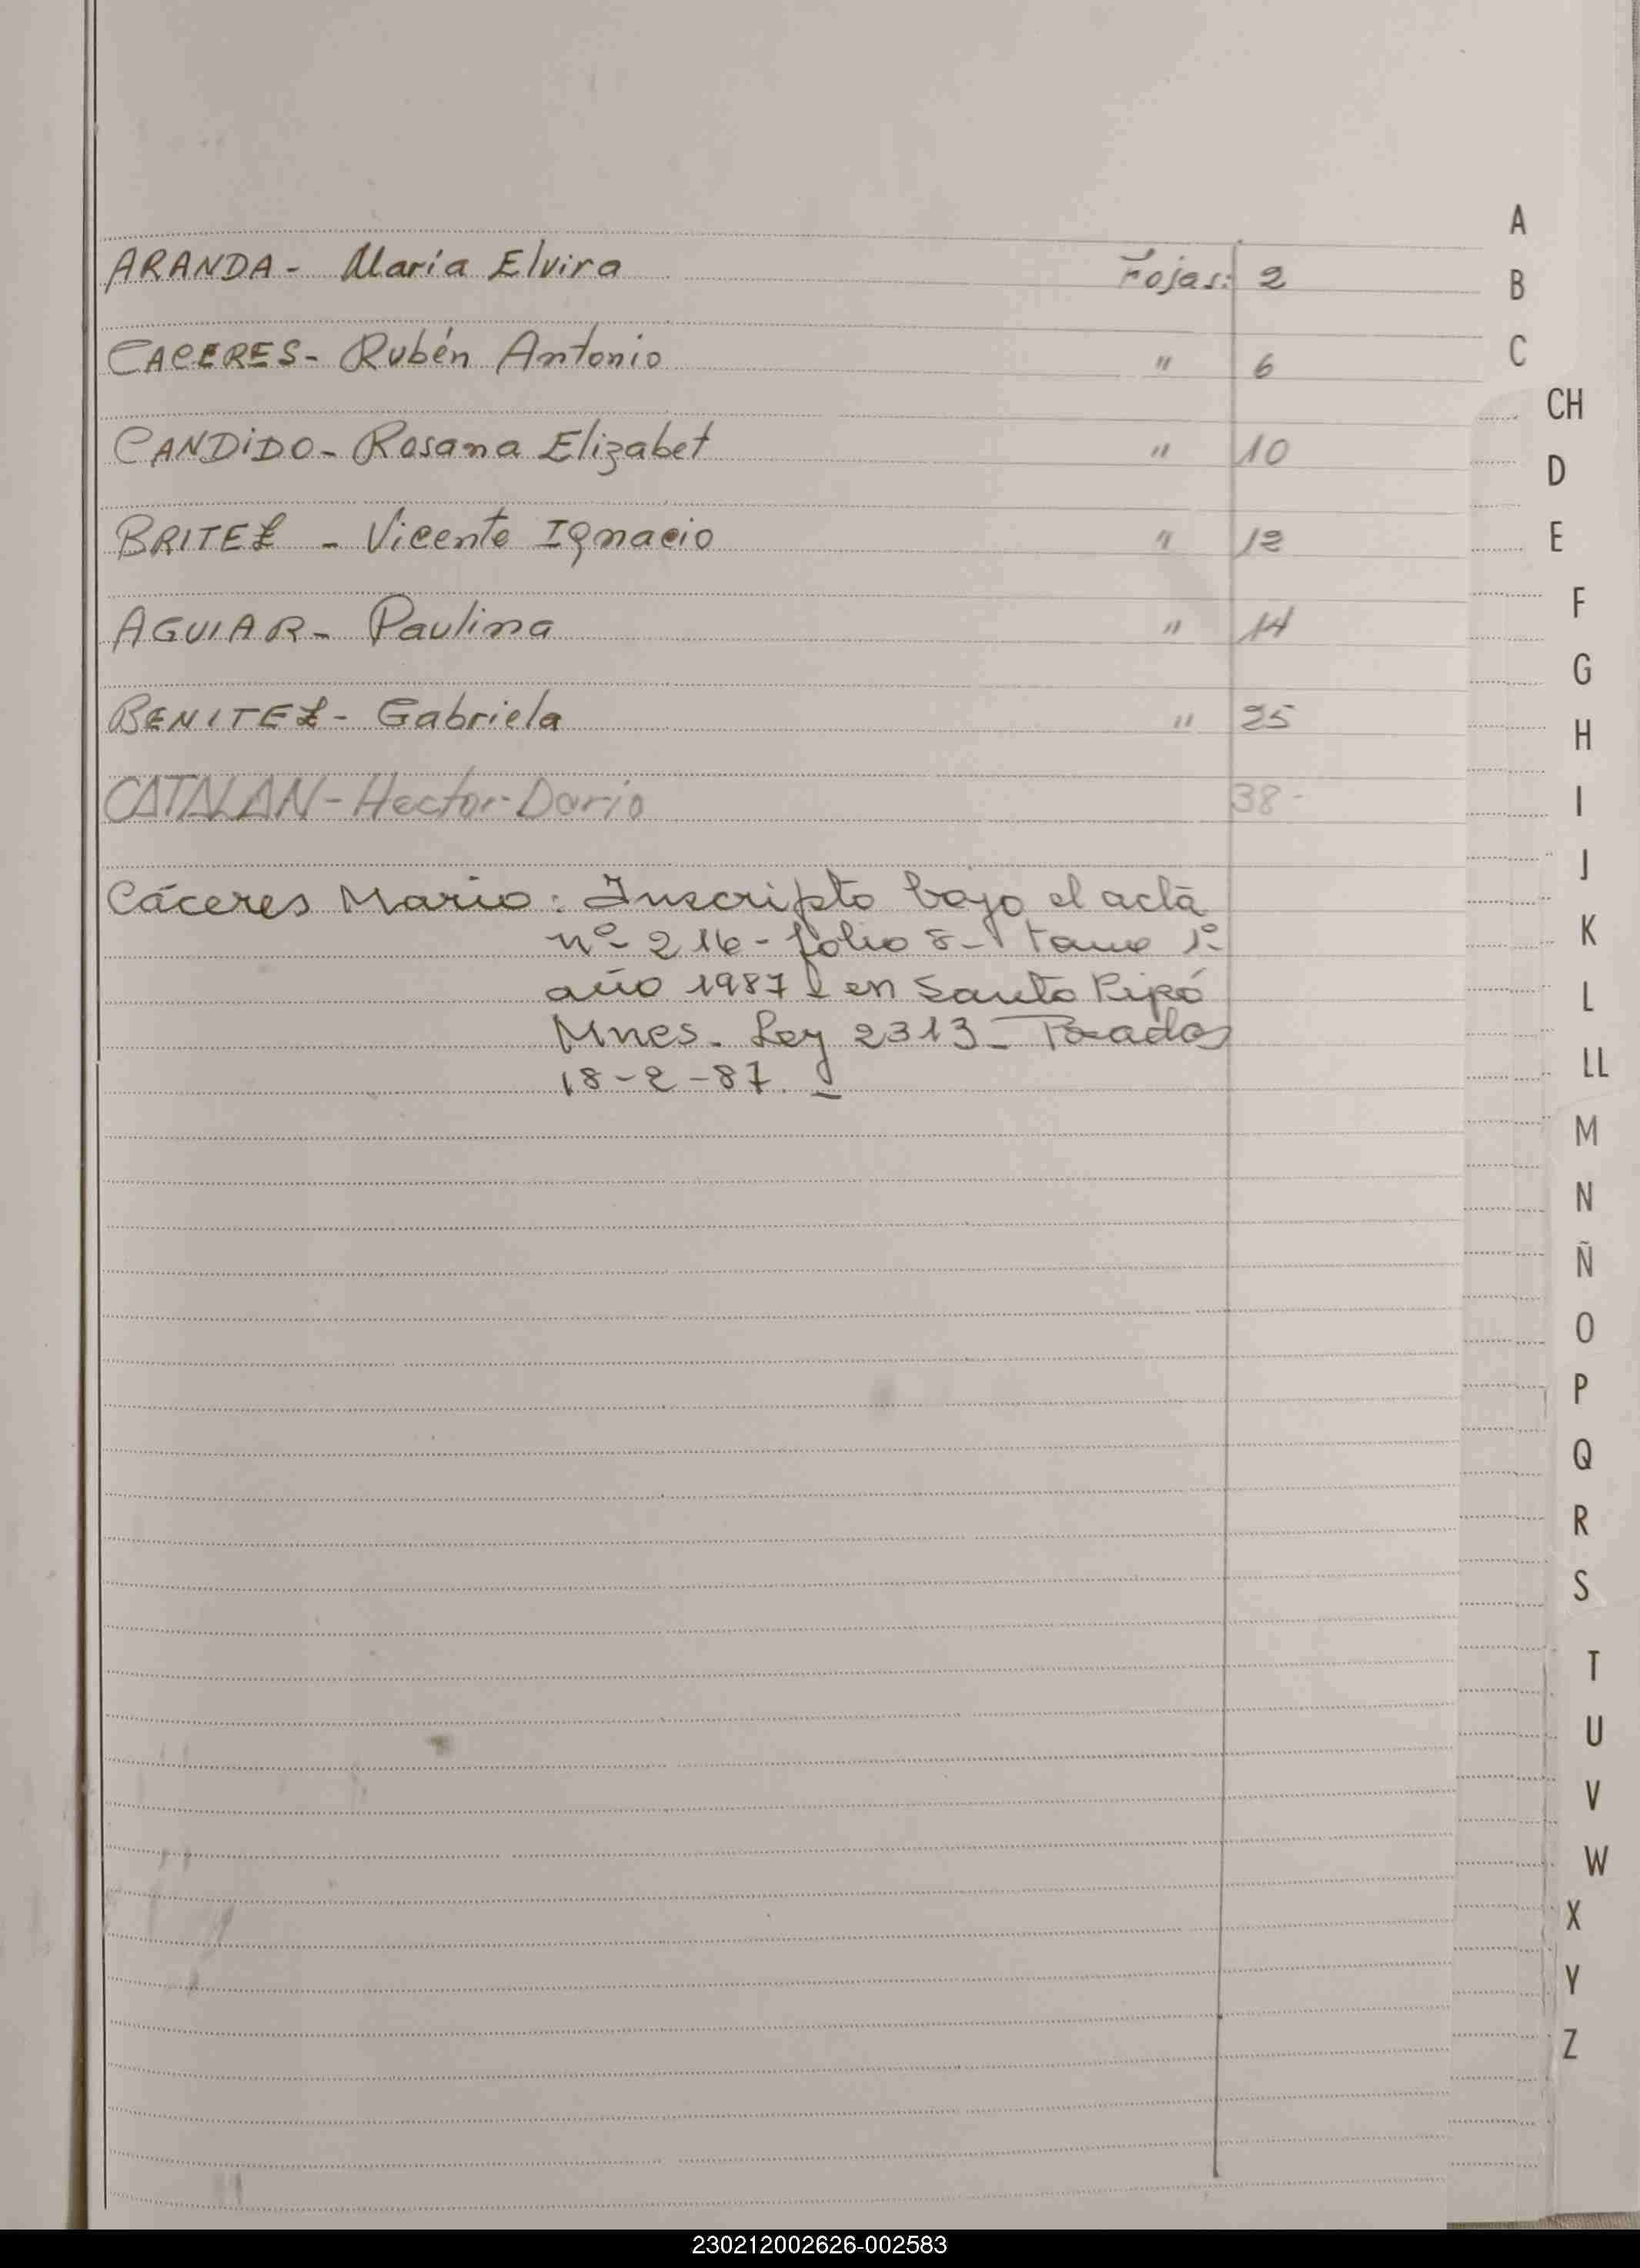 ARANDA - María Elvira Fojas: 2
CACERES - Rubén Antonio " 6
CANDIDO - Rosana Elizabet " 10
BRITEZ - Vicente Ignacio " 12
AGUIAR - Paulina " 14
BENITEZ - Gabriela " 25
CATALAN - Hector Dario 38 -
Cáceres Mario: Inscripto bajo el acta
nº 216 - folio 8 - tomo 1º
año 1987 en Santo Pipó
Mnes. Ley 2313 -
18-2-87. -
A
B
C
CH
D
E
F
G
H
I
J
K
L
LL
M
N
Ñ
O
P
Q
R
S
T
U
V
W
X
Y
Z
230212002626-002583